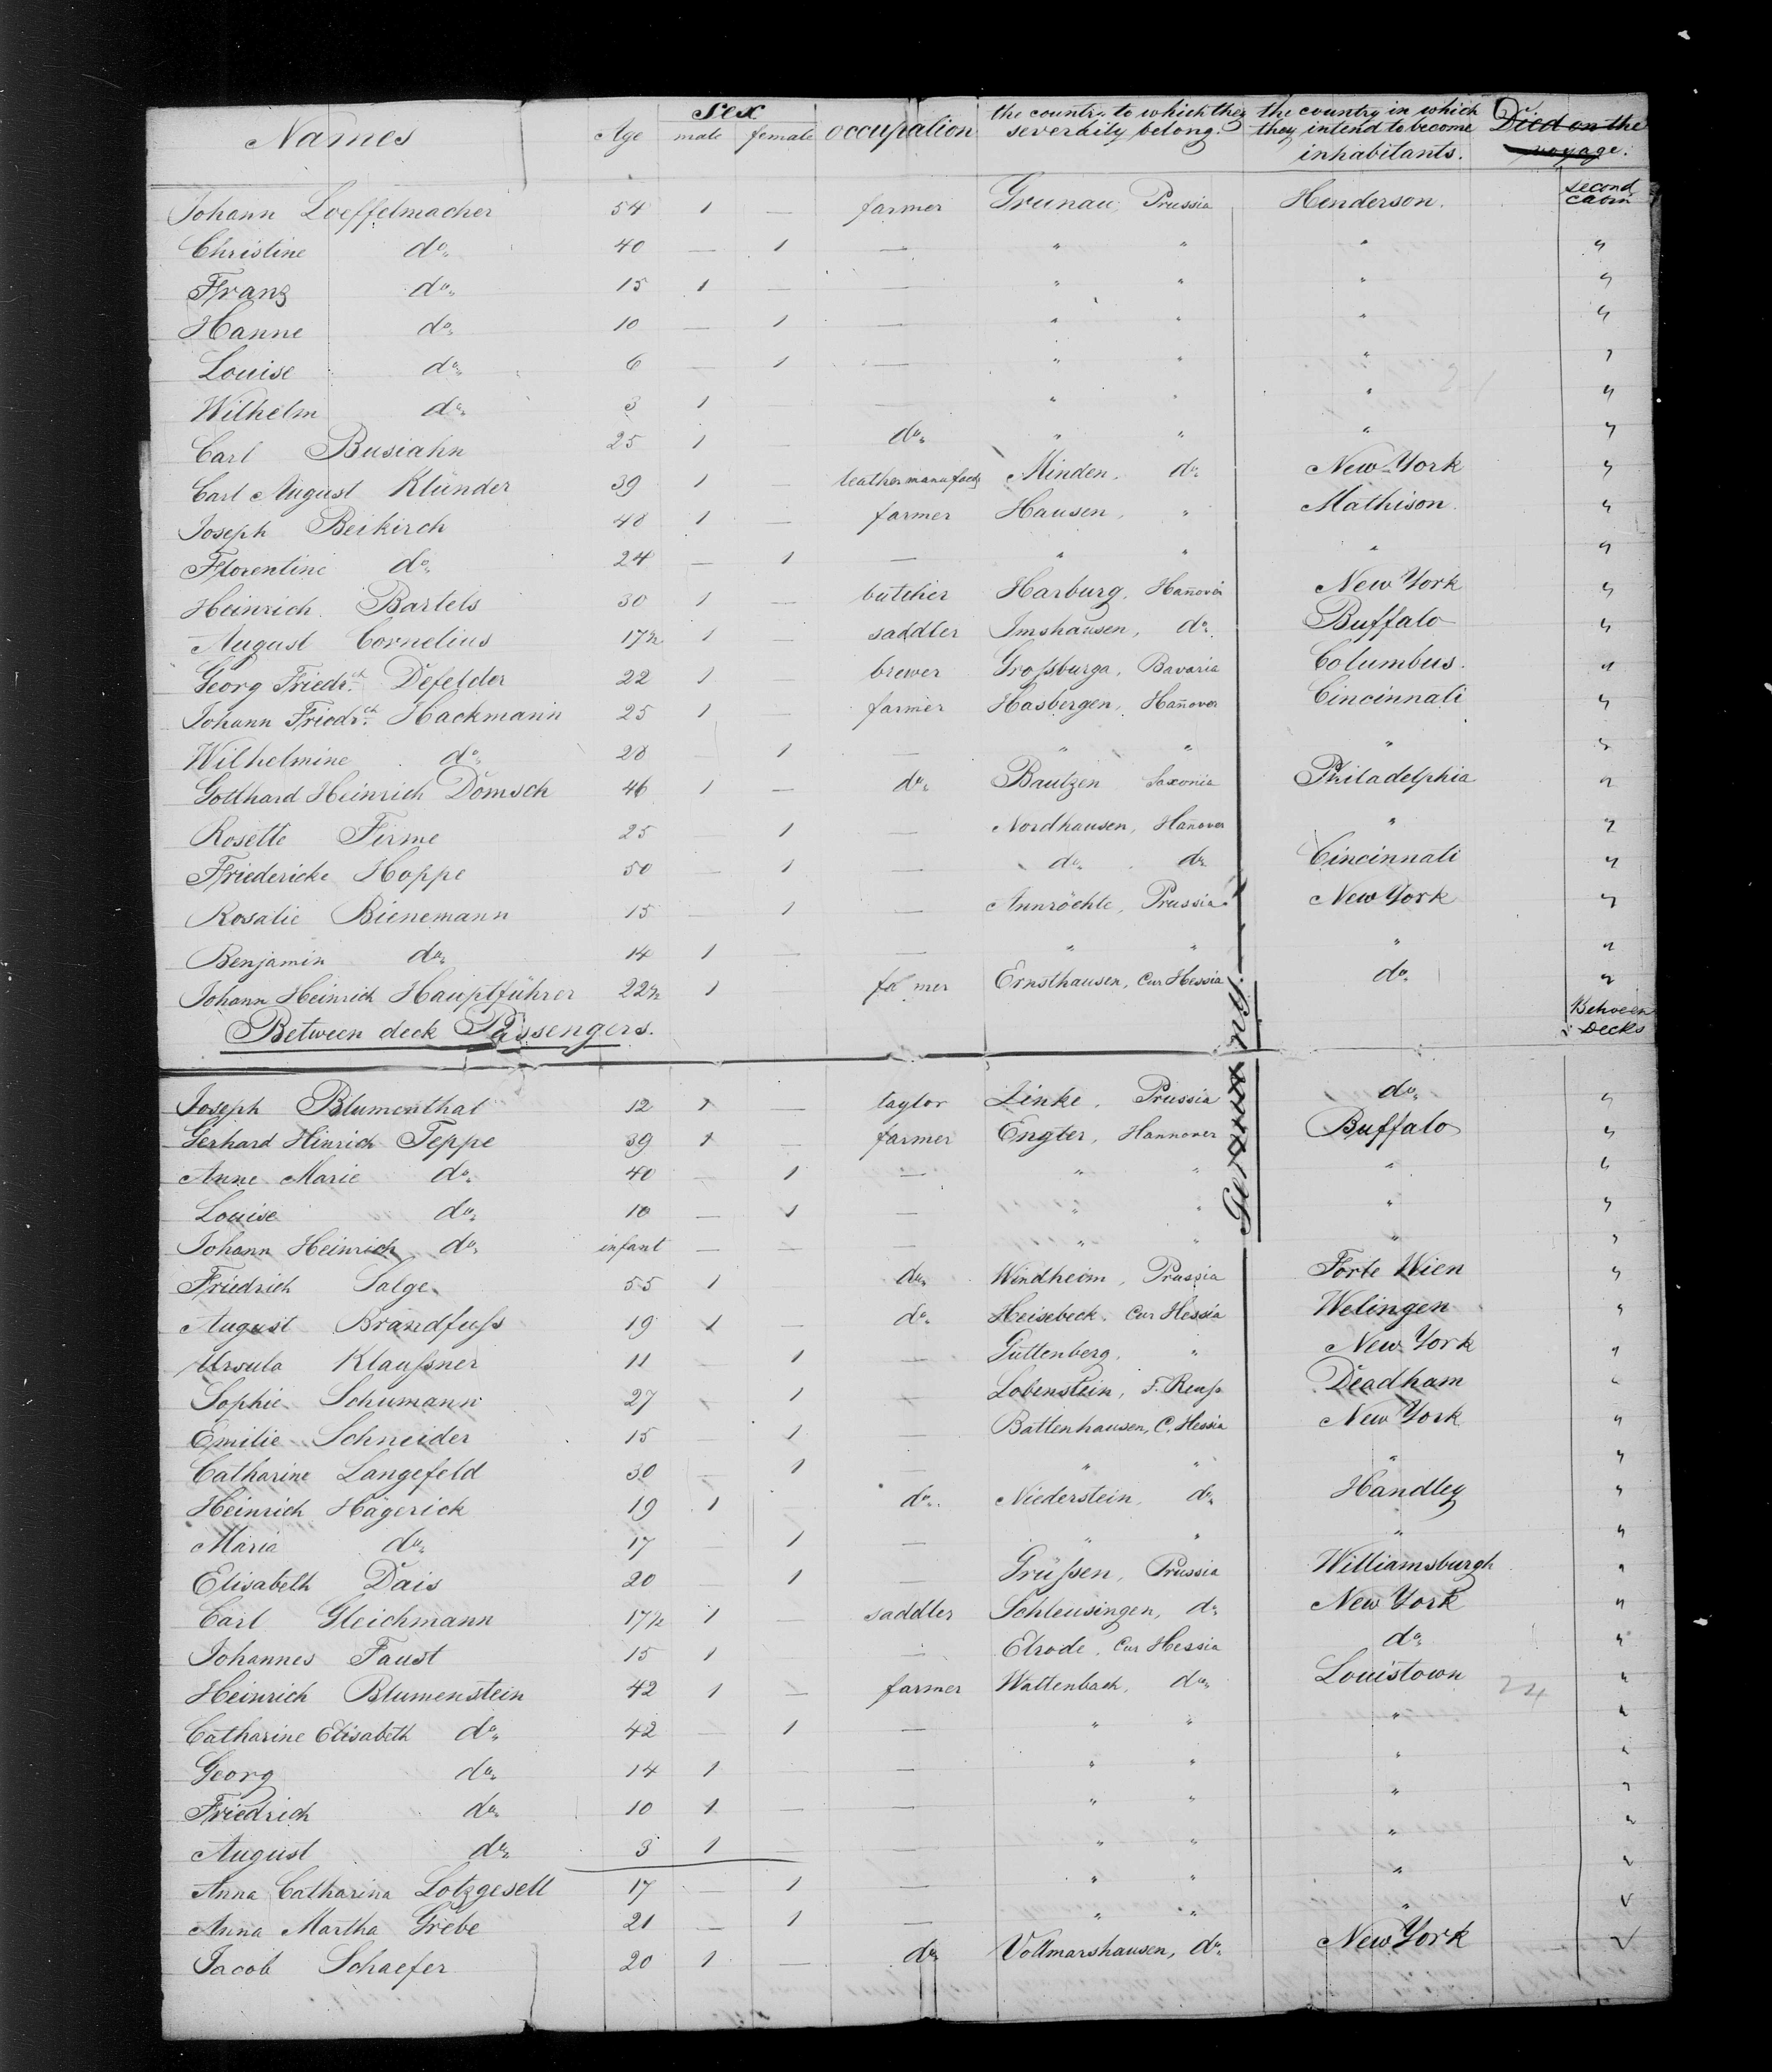 Names Age Sex male female occupation the country to which they severally belong. the country in which they intend to become inhabitants. Died on the voyage.
Johann Loeffelmacher 54 1 — farmer Grunau, Prussia Henderson. second cabin
Christine do. 40 — 1 — " " " "
Franz do. 15 1 — — " " " "
Hanne do. 10 — 1 — " " " "
Louise do. 6 — 1 — " " " "
Wilhelm do. 3 1 — — " " " "
Carl Busiahn 25 1 — do. " " " "
Carl August Klünder 39 1 — leather manufact. Minden, do. New York "
Joseph Beikirch 48 1 — farmer Hausen, " Mathison. "
Florentine do. 24 — 1 — " " " "
Heinrich Bartels 30 1 — butcher Harburg, Hanover New York "
August Cornelius 17½ 1 — saddler Imshausen, do. Buffalo "
Georg Friedr.ch Defelder 22 1 brewer Großburga, Bavaria Columbus. "
Johann Friedr.ch Hackmann 25 1 — farmer Hasbergen, Hanover Cincinnati "
Wilhelmine do. 28 — 1 — " " " "
Gotthard Heinrich Domsch 46 1 — do. Bautzen Saxonia Philadelphia "
Rosette Firme 25 — 1 — Nordhausen, Hanover " "
Friedericke Hoppe 50 — 1 — do. do. Cincinnati "
Rosalie Bienemann 15 1 — Annröchte, Prussia New York "
Benjamin do. 14 1 — — " " " "
Johann Heinrich Hauptführer 22½ 1 farmer Ernsthausen, Cur Hessia do. "
Between deck Passengers. Between Decks
Germany.
Joseph Blumenthal 12 1 — taylor Linke, Prussia do. "
Gerhard Hinrich Teppe 39 1 — farmer Engter, Hannover Buffalo "
Anne Marie do. 40 — 1 — " " " "
Louise do. 10 — 1 — " " " "
Johann Heinrich do. infant — — — " " " "
Friedrich Salge 55 1 do. Windheim, Prussia Forte Wien "
August Brandfuß 19 1 — do. Heisebeck, Cur Hessia Welingen "
Ursula Klaußner 11 — 1 — Guttenberg, " New York "
Sophie Schumann 27 1 — Lobenstein, F. Reuß Deadham "
Emilie Schneider 15 1 — Battenhausen, C. Hessia New York "
Catharine Langefeld 30 — 1 " " " "
Heinrich Hägerick 19 1 do. Niederstein, do. Handley "
Maria do. 17 — 1 — " " " "
Elisabeth Dais 20 — 1 — Grüßen, Prussia Williamsburgh "
Carl Gleichmann 17½ 1 — saddler Schleusingen, do. New York "
Johannes Faust 15 1 — Elrode, Cur Hessia do. "
Heinrich Blumenstein 42 1 — farmer Wattenbach, do. Louistown 24 "
Catharine Elisabeth do. 42 — 1 — " " " "
Georg do. 14 1 — — " " " "
Friedrich do. 10 1 — — " " " "
August do. 3 1 — — " " " "
Anna Catharina Lotzgesell 17 — 1 — " " " "
Anna Martha Grebe 21 — 1 — " " " "
Jacob Schaefer 20 1 — do. Vollmarshausen, do. New York "